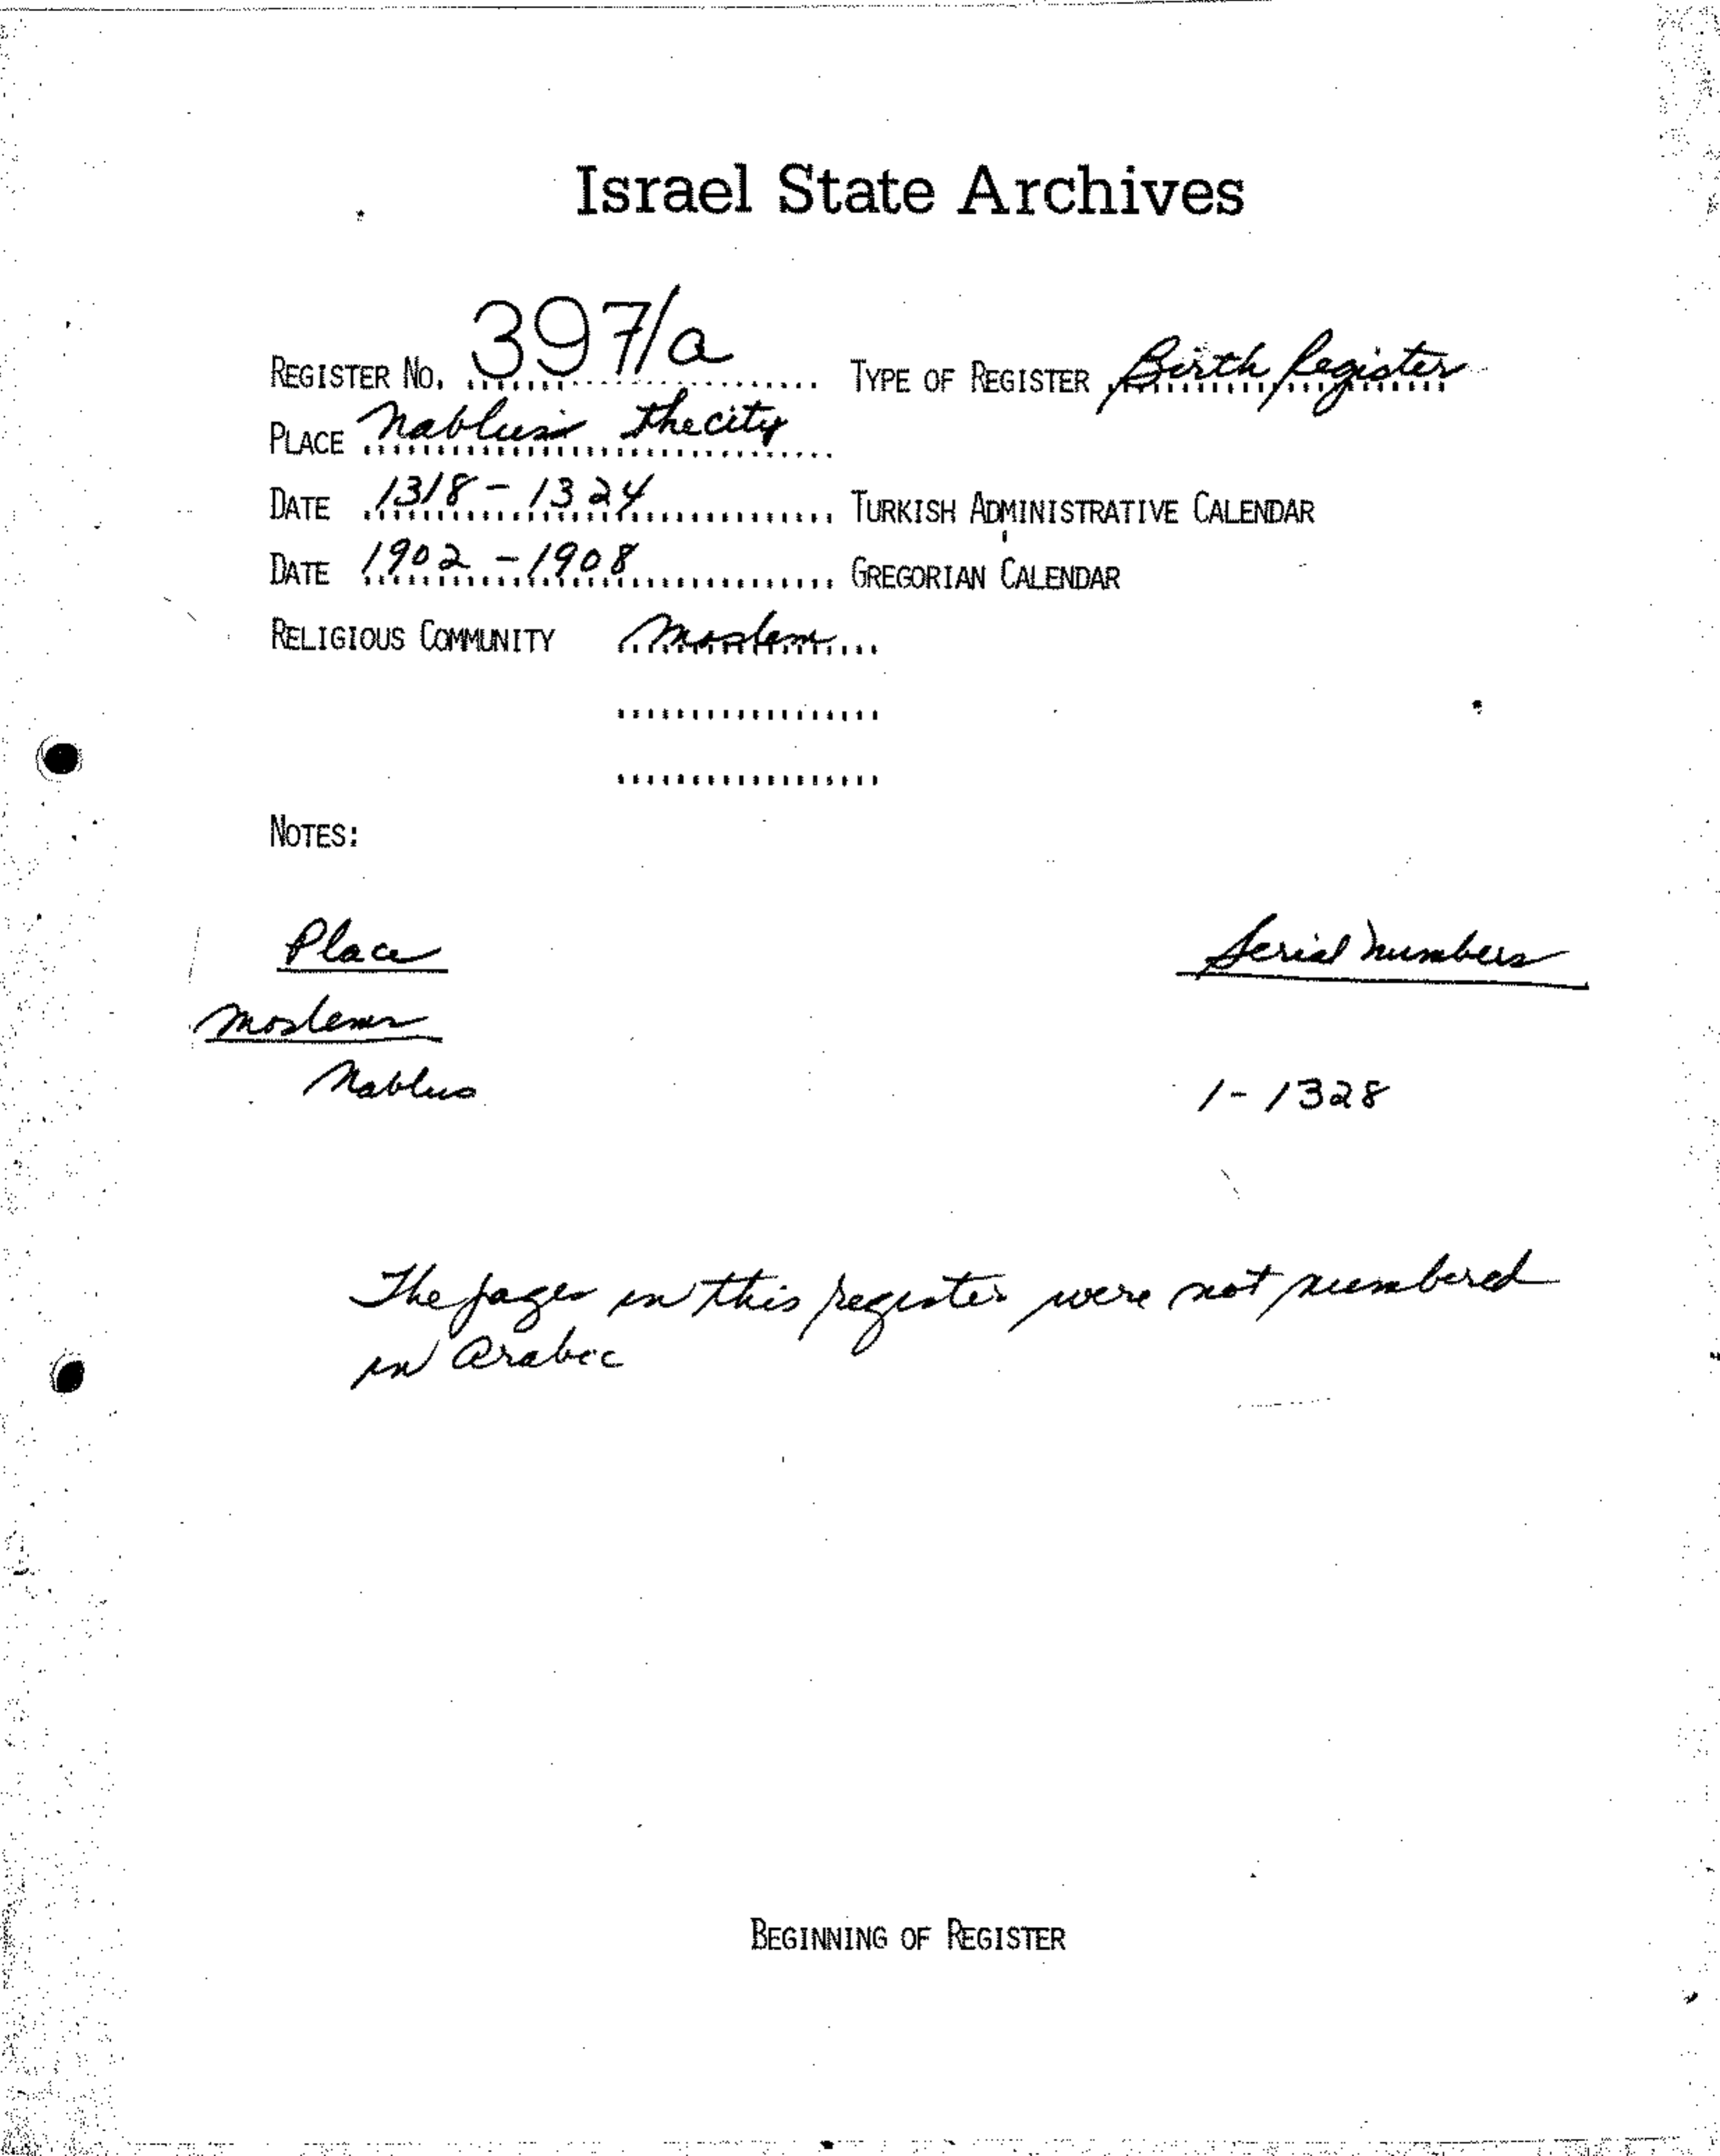 Israel State Archives
REGISTER NO. 397/a TYPE OF REGISTER Birth Register
PLACE Nablus the city
DATE 1318 - 1324 TURKISH ADMINISTRATIVE CALENDAR
DATE 1902 - 1908 GREGORIAN CALENDAR
RELIGIOUS COMMUNITY Moslem
NOTES:
Place Serial numbers
Moslems
Nablus 1 - 1328
The pages in this register were not numbered
in Arabic
BEGINNING OF REGISTER